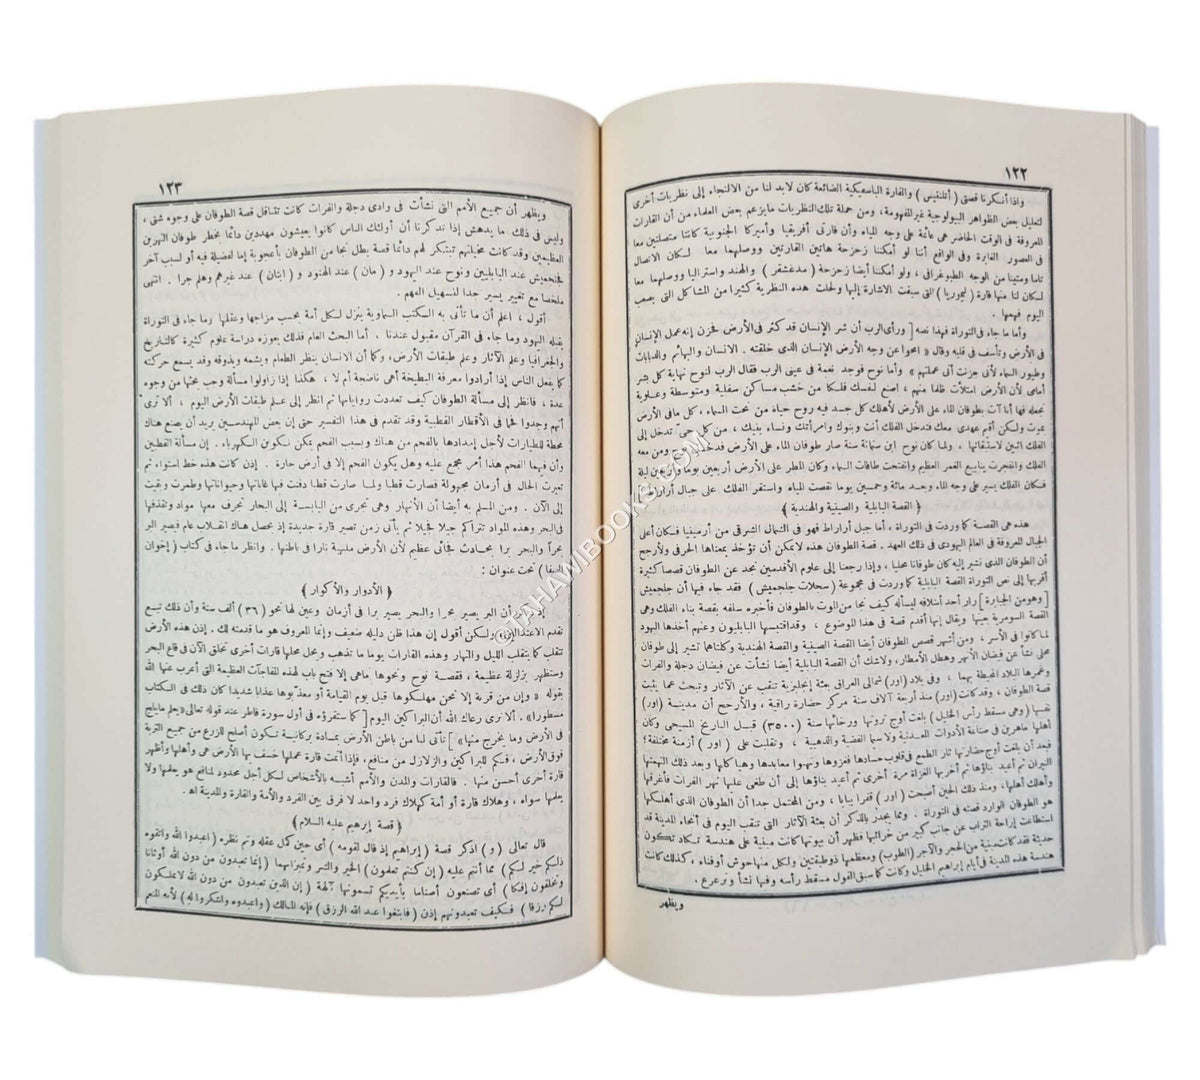 ١٢٢
واذا أنكرنا قصتى ( أتلنتيس ) والقارة الباسفيكية الضائعة كان لابد لنا من الالتجاء إلى نظريات أخرى
لتعليل بعض الظواهر البيولوجية غير المفهومة، ومن جملة تلك النظريات مايزعم بعض العلماء من أن القارات
المعروفة فى الوقت الحاضر هى عائمة على وجه المياه وأن قارتى أفريقيا وأميركا الجنوبية كانتا متصلتين معا
فى العصور الغابرة وفى الواقع أننا لو أمكننا زحزحة هاتين القارتين ووصلهما معا لسكان الاتصال
تاما ومتينا من الوجه الطبوغرافى ، ولو أمكننا أيضا زحزحة ( مدغشقر ) والهند واستراليا ووصلهما معا
لسكان لنا منها قارة ( ليموريا ) التى سبقت الاشارة إليها ولحلت هذه النظرية كثيرا من المشاكل التى يصعب
اليوم فهمها .
وأما ما جاء فى التوراة فهذا نصه [ ورأى الرب أن شر الإنسان قد كثر فى الأرض فحزن إنه عمل الإنسان
فى الأرض وتأسف فى قلبه وقال « امحوا عن وجه الأرض الإنسان الذى خلقته . الانسان والبهائم والدبابات
وطيور السماء لأنى حزنت أنى عملتهم » وأما نوح فوجد نعمة فى عينى الرب فقال الرب لنوح نهاية كل بشر
أمامى لأن الأرض امتلأت ظلما منهم ، اصنع لنفسك فلكا من خشب مساكن سفلية ومتوسطة وعلوية
تجعله فها أنا آت بطوفان الماء على الأرض لأهلك كل جسد فيه روح حياة من تحت السماء ، كل مافى الأرض
يموت ولكن أقيم عهدى معك فتدخل الفلك أنت وبنوك وامرأتك ونساء بنيك ، من كل حىّ تدخل إلى
الفلك اثنين لاستبقائها ، ولما كان نوح ابن ستمائة سنة صار طوفان الماء على الأرض فدخل ومن معه
الفلك وانفجرت ينابيع الغمر العظيم وانفتحت طاقات السماء وكان المطر على الأرض أربعين يوما وأربعين ليلة
فكان الفلك يسير على وجه الماء وبعد مائة وخمسين يوما نقصت المياه واستقر الفلك على جبال أراراط
﴿ القصة البابلية والصينية والهندية ﴾
هذه هى القصة كما وردت فى التوراة ، أما جبل أراراط فهو فى الشمال الشرقى من أرمينيا فكان أعلى
الجبال المعروفة فى العالم اليهودى فى ذلك العهد . قصة الطوفان هذه لايمكن أن تؤخذ بمعناها الحرفى ولأرجح
أن الطوفان الذى نشير إليه كان طوفانا محليا ، وإذا رجعنا إلى علوم الأقدمين نجد عن الطوفان قصصا كثيرة
أقربها إلى نص التوراة القصة البابلية كما وردت فى مجموعة ( سجلات جلجميش ) فقد جاء فيها أن جلجميش
[ وهو من الجبابرة ] زار أحد أسلافه ليسأله كيف نجا من الموت بالطوفان فأخبره سلفه بقصة بناء الفلك وهى
القصة السومرية بعينها ويقال إنها أقدم قصة فى هذا الموضوع ، وقد اقتبسها البابليون وعنهم أخذها اليهود
لما كانوا فى الأسر ، ومن أشهر قصص الطوفان أيضا القصة الصينية والقصة الهندية وكلتاهما تشير إلى طوفان
محلى نشأ عن فيضان الأنهر وهطل الأمطار ، ولاشك أن القصة البابلية أيضا نشأت عن فيضان دجلة والفرات
وغمرها البلاد المحيطة بهما ، وفى بلاد ( اور ) شمالى العراق بعثة إنجليزية تنقب عن الآثار وتبحث عما يثبت
قصة الطوفان ، وقد كانت ( اور ) منذ أربعة آلاف سنة مركز حضارة راقية ، والأرجح أن مدينة ( اور )
نفسها ( وهى مسقط رأس الخليل ) بلغت أوج ثروتها ورخائها سنة ( ٣٥٠٠ ) قبل التاريخ المسيحى وكان
أهلها ماهرين فى صناعة الأدوات المعدنية ولاسيما الفضية والذهبية ، وتقلبت على ( اور ) أزمنة مختلفة ؛
فبعد أن بلغت أوج حضارتها ثار الطمع فى قلوب حسادها فغزوها ونهبوا معابدها وهياكلها وبعد ذلك التهمتها
النيران ثم أعيد بناؤها ثم أخربها الغزاة مرة أخرى ثم أعيد بناؤها إلى أن طغى عليها نهر الفرات فأغرقها
وأهلك أهلها ، ومنذ ذلك الحين أصبحت ( اور ) قفرا يبابا ، ومن المحتمل جدا أن الطوفان الذى أهلكها
هو الطوفان الوارد قصته فى التوراة . ومما يجدر بالذكر أن بعثة الآثار التى تنقب اليوم فى أنحاء المدينة قد
استطاعت إزاحة التراب عن جانب كبير من خرائبها فظهر أن بيوتها كانت مبنية على هندسة تكاد تكون
حديثة فقد كانت مبنية من الحجر والآجر ( الطوب ) ومعظمها ذو طبقتين ولكل منها حوش أو فناء ، كذلك كانت
هندسة هذه المدينة فى أيام إبراهيم الخليل وكانت كما سبق القول مسقط رأسه وفيها نشأ وترعرع .
ويظهر
١٢٣
ويظهر أن جميع الأمم التى نشأت فى وادى دجلة والفرات كانت تتناقل قصة الطوفان على وجوه شتى ،
وليس فى ذلك ما يدهش إذا تذكرنا أن أولئك الناس كانوا يعيشون مهددين دائما بخطر طوفان النهرين
العظيمين وقد كانت مخيلتهم تبتكر لهم دائما قصة بطل نجا من الطوفان بأعجوبة إما لفضيلة فيه أو لسبب آخر
فجلجميش عند البابليين ونوح عند اليهود و ( مان ) عند الهنود و ( ايتان ) عند غيرهم وهلم جرا . انتهى
ملخصا مع تغيير يسير جدا لتسهيل الفهم .
أقول ، اعلم أن ما تأتى به الكتب السماوية ينزل لكل أمة بحسب مزاجها وعقلها وما جاء فى التوراة
يقبله اليهود وما جاء فى القرآن مقبول عندنا . أما البحث العام فذلك يعوزه دراسة علوم كثيرة كالتاريخ
والجغرافيا وعلم الآثار وعلم طبقات الأرض ، وكما أن الانسان ينظر الطعام ويشمه ويذوقه وقد يسمع حركته
كما يفعل الناس إذا أرادوا معرفة البطيخة أهى ناضجة أم لا ، هكذا إذا زاولوا مسألة وجب بحثها من وجوه
عدة ، فانظر إلى مسألة الطوفان كيف تعددت رواياتها ثم انظر إلى علم طبقات الأرض اليوم ، ألا ترى
أنهم وجدوا فحما فى الأقطار القطبية وقد تقدم فى هذا التفسير حتى إن بعض المهندسين يريد أن يصنع هناك
محطة للطيارات لأجل إمدادها بالفحم من هناك وبسبب الفحم يمكن تكوين الكهرباء . إن مسألة القطبين
وأن فيهما الفحم هذا أمر مجمع عليه وهل يكون الفحم إلا فى أرض حارة . إذن كانت هذه خط استواء ثم
تغيرت الحال فى أزمان مجهولة فصارت قطبا ولما صارت قطبا دفنت فيها غاباتها وحيواناتها وطمرت وبقيت
إلى الآن . ومن المسلم به أيضا أن الأنهار وهى تجرى من اليابسة إلى البحار تجرف معها مواد وتقذفها
فى البحر وهذه المواد تتراكم جيلا فجيلا ثم يأتى زمن تصير قارة جديدة إذ يحصل هناك انقلاب عام فيصير البر
بحرا والبحر برا بحادث فجائى عظيم لأن الأرض ملتهبة نارا فى باطنها . وانظر ما جاء فى كتاب ( إخوان
الصفا ) تحت عنوان :
﴿ الأدوار والأكوار ﴾
أن البر يصير بحرا والبحر يصير برا فى أزمان وعين لها نحو ( ٣٦ ) ألف سنة وأن ذلك تبع
تقدم الاعتدالين ، ولكن أقول إن هذا ظن دليله ضعيف وإنما المعروف هو ما قدمته لك . إذن هذه الأرض
تتقلب كما يتقلب الليل والنهار وهذه القارات يوما ما تذهب وتحل محلها قارات أخرى تخلق الآن فى قاع البحر
وستظهر بزلازلة عظيمة ، فقصة نوح ونحوها ماهى إلا فتح باب لهذه المفاجآت العظيمة التى أعرب عنها الله
بقوله « وإن من قرية إلا نحن مهلكوها قبل يوم القيامة أو معذّبوها عذابا شديدا كان ذلك فى الكتاب
مسطورا » . ألا ترى رعاك الله أن البراكين اليوم [ كما ستقرؤه فى أول سورة فاطر عند قوله تعالى « يعلم مايلج
فى الأرض وما يخرج منها » ] تأتى لنا من باطن الأرض بمادة بركانية تكون أصلح للزرع من جميع التربة
فوق الأرض ، فكم للبراكين والزلازل من منافع ، فإذا أتمت قارة عملها خسف بها الأرض هى وأهلها وأظهر
قارة أخرى أحسن منها . فالقارات والمدن والأمم أشبه بالأشخاص لكل أجل محدود لمنافع هو يعلمها ولا
يعلمها سواه ، وهلاك قارة أو أمة كهلاك فرد واحد لا فرق بين الفرد والأمة والقارة والمدينة اه .
﴿ قصة إبراهيم عليه السلام ﴾
قال تعالى ( و ) اذكر قصة ( إبراهيم إذ قال لقومه ) أى حين كمل عقله وتم نظره ( اعبدوا الله واتقوه
ذلكم خير لكم ) مما أنتم عليه ( إن كنتم تعلمون ) الخير والشر وتميزانهما ( إنما تعبدون من دون الله أوثانا
وتخلقون إفكا ) أى تصنعون أصناما بأيديكم تسمونها آلهة ( إن الذين تعبدون من دون الله لا يملكون
لكم رزقا ) فكيف تعبدونهم إذن ( فابتغوا عند الله الرزق ) فإنه المالك ( واعبدوه واشكروا له ) لأنه المنعم
©TAHAWIBOOKS.COM